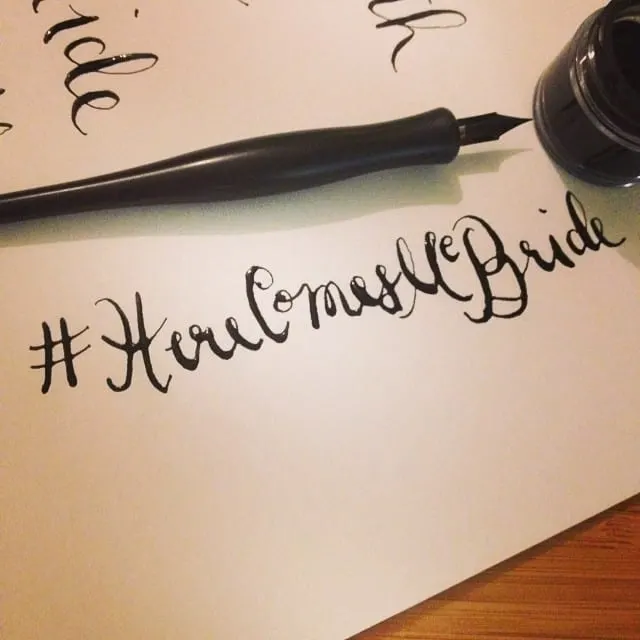 ride
#HereComesMcBride